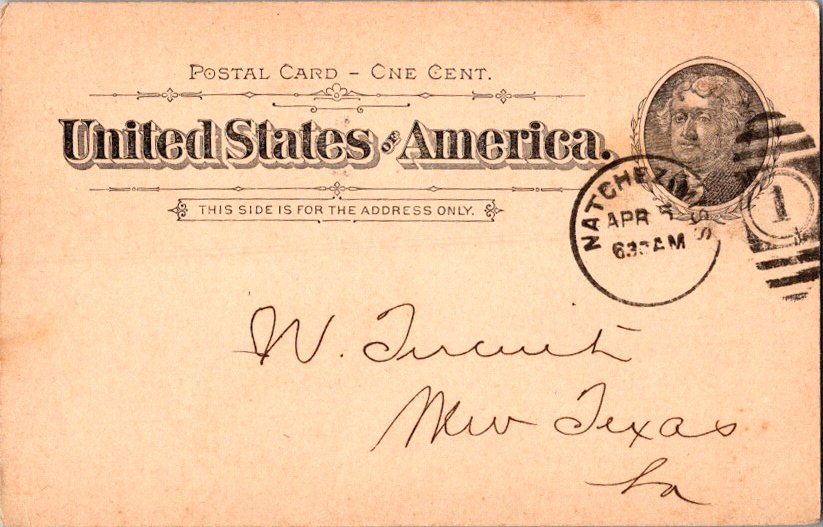 POSTAL CARD - ONE CENT.
United States OF America.
THIS SIDE IS FOR THE ADDRESS ONLY.
NATCHEZ MISS
APR 5
630AM
1
W.
New Texas
La